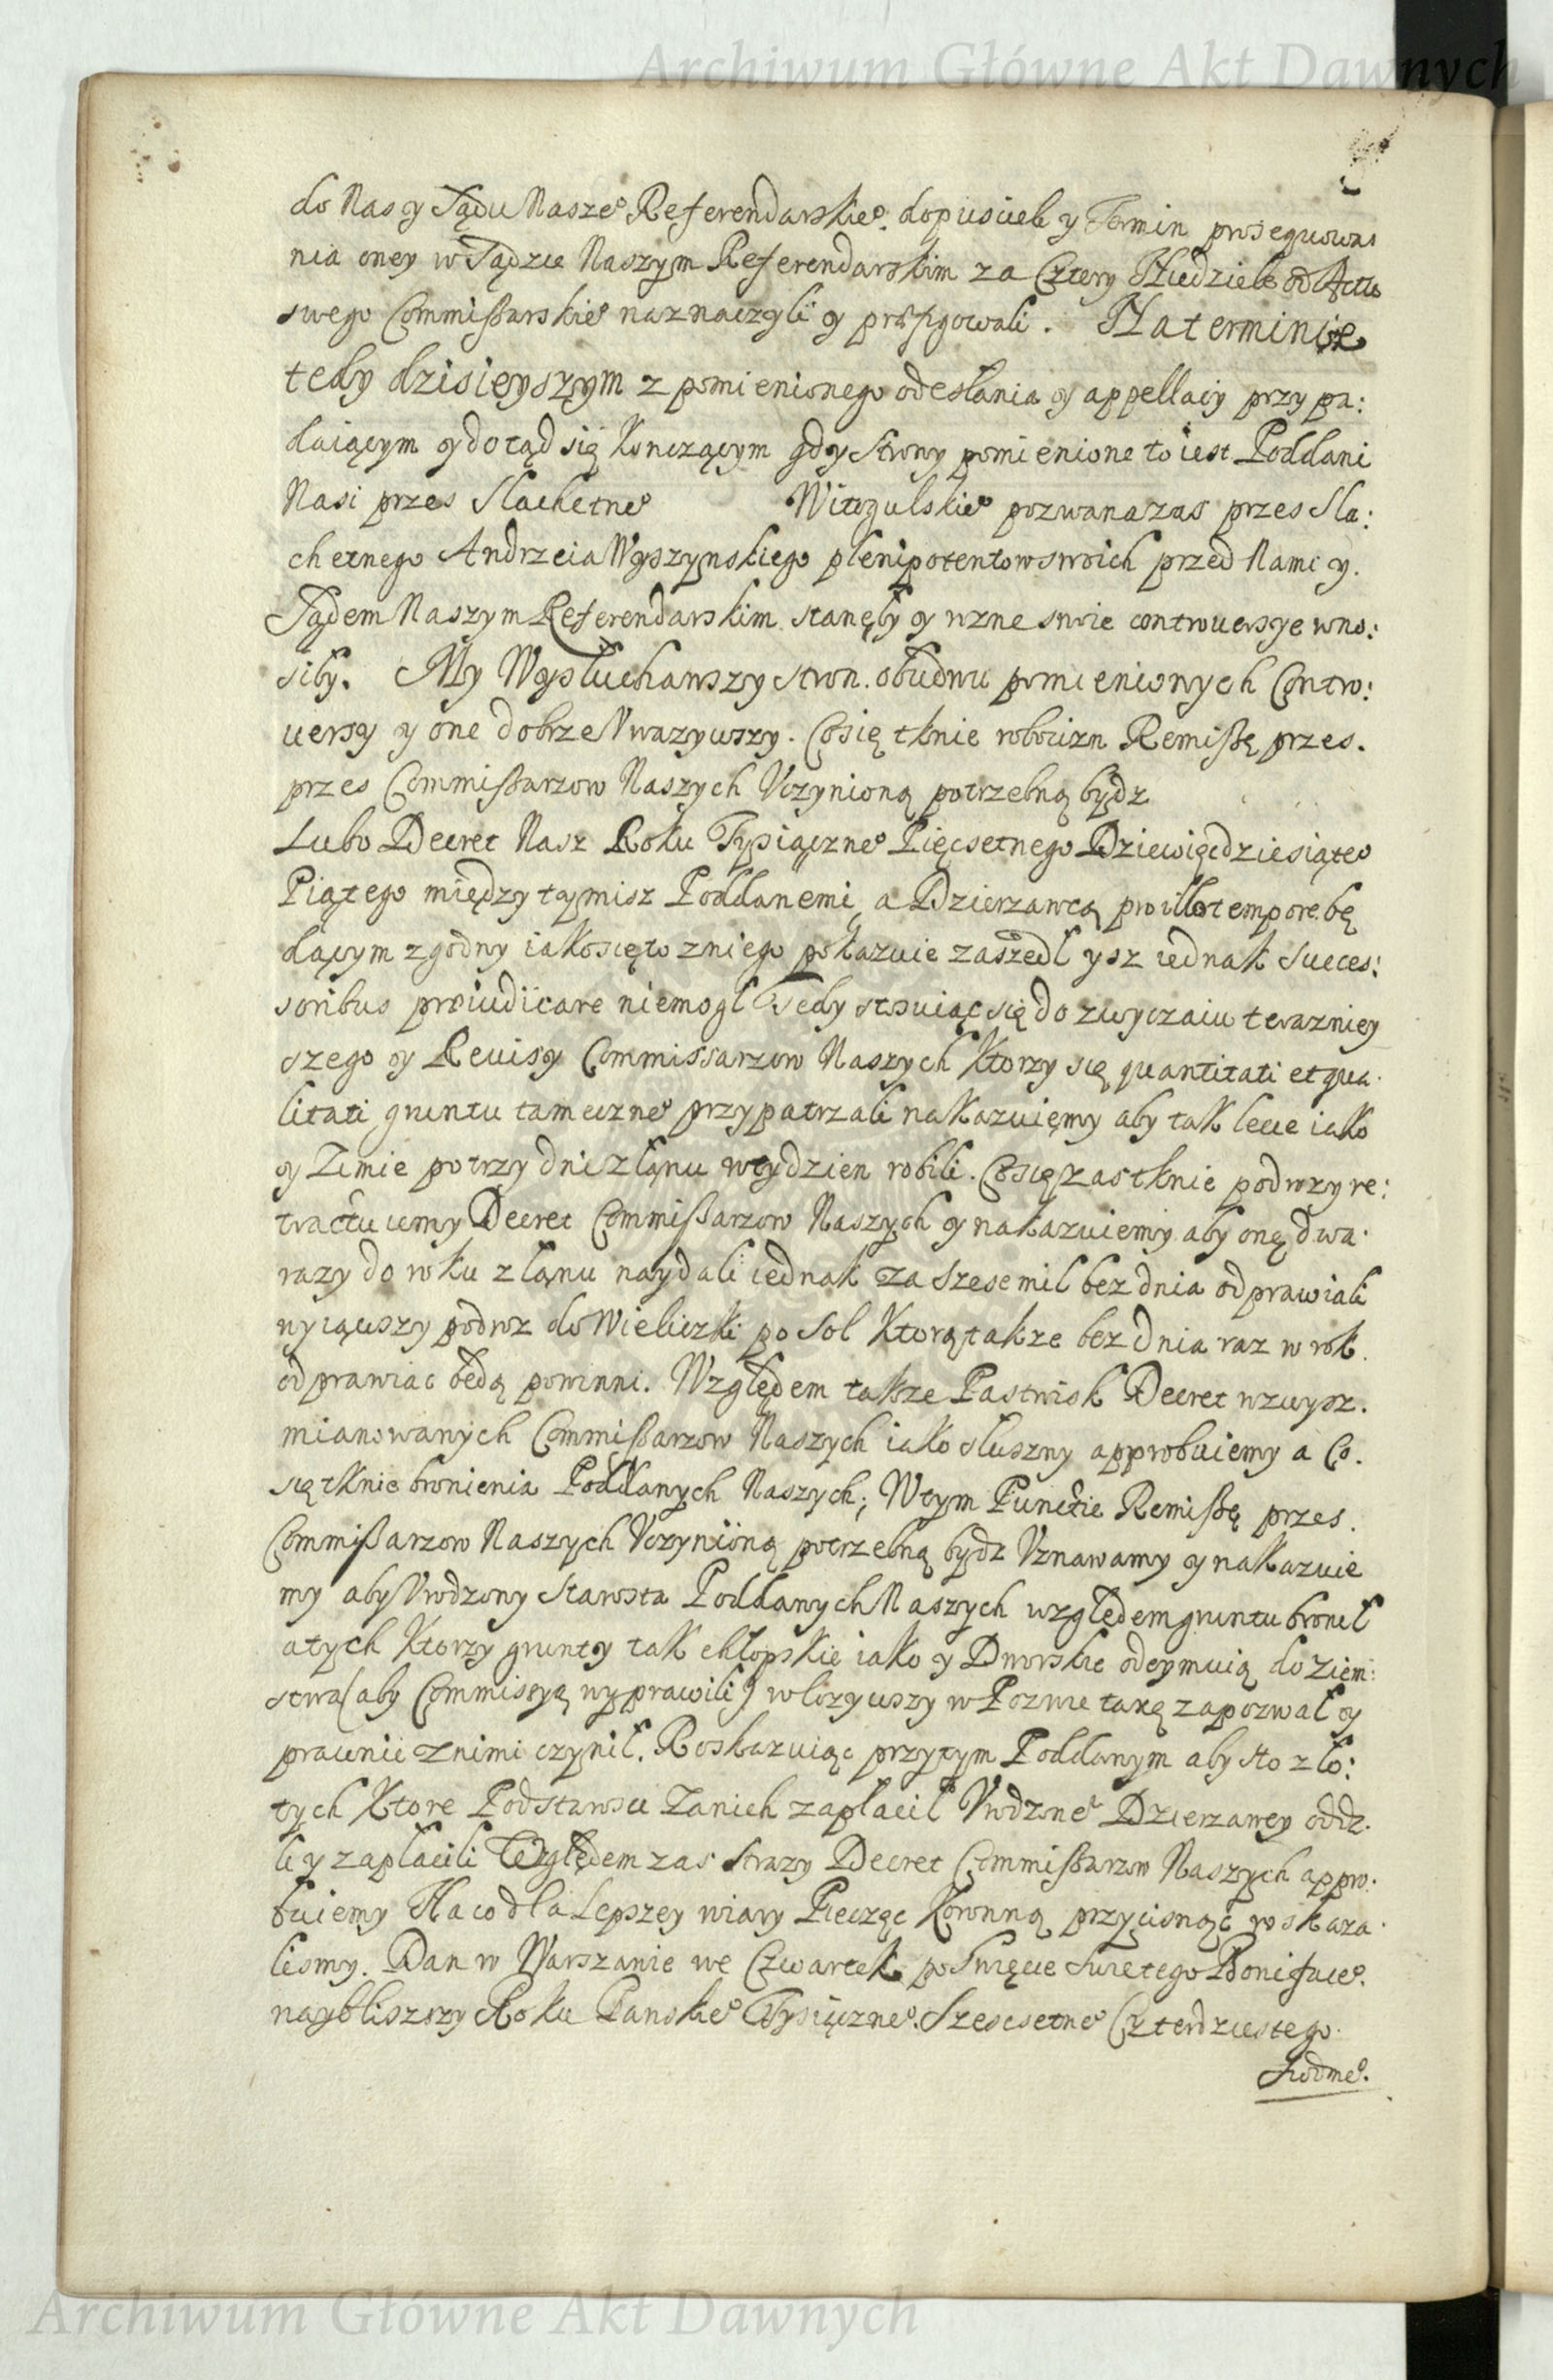 Archiwum Główne Akt Dawnych
do Nas y Sądu Nasze° Referendarskie°. dopuscieli y Termin prosequowa
nia oney w Sądzie Naszym Referendarskim za Cztery Niedziele od Actu
swego Commissarskie° naznaczyli y præfigowali. Na terminie
tedy dzisieyszym z pomienionego odesłania y appellacy przypa:
daiącym y dotąd się Konczącym gdy Strony pomienione to iest Poddani
Nasi przes Slachetne° Witogulskie° pozwana zas przes Sla:
chetnego Andrzeia Wyszynskiego plenipotentow swoich przed Nami y.
Sądem Naszym Referendarskim stanęły y rzne swoie controuersye wno:
siły. My Wysłuchawszy stron. obudwu pomienionych Contro:
uersy y one dobrze Vwazywszy. Co się tknie robocizn Remissę przes.
przes Commissarzow Naszych Vczynioną potrzebną bydz
Lubo Decret Nasz Roku Tysiączne° Pięcsetnego Dziewięcdziesiąte°
Piątego między tymisz Poddanemi a Dzierzawcą pro illo tempore bę
dącym zgodny iako się to z niego pokazuie zaszedl ysz iednak succes:
soribus præiudicare niemogl Tedy stosuiąc się do zwyczaiu terazniey
szego y Reuisy Commissarzow Naszych Ktorzy się quantitati et qua
litati gruntu tameczne° przypatrzali nakazuięmy aby tak lecie iako
y Zimie po trzy dni z łąnu w tydzien robili. Co się zas tknie podrozy re:
tractuiemy Decret Commissarzow Naszych y nakazuiemy aby onę dwa
razy do roku z łąnu naydali iednak za szesc mil bez dnia odprawiali
wyiąwszy podroz do Wieliczki po Sol Ktorą takze bez dnia raz w rok
odprawiac będą powinni. Względem takze Pastwisk Decret wzwysz.
mianowanych Commissarzow Naszych iako słuszny approbuiemy a Co.
się tknie bronienia Poddanych Naszych; W tym Punctie Remissę przes.
Commissarzow Naszych Vczynioną potrzebną bydz Vznawamy y nakazuie
my aby Vrodzony Starosta Poddanych Naszych względem gruntu bronił
a tych Ktorzy grunty tak chłopskie iako y Dworskie odeymuią do Ziem:
stwa (aby Commissyą wyprawili) wlozywszy w Pozwie taxę zapozwał y
prawnie z nimi czynił. Roskazuiąc przytym Poddanym aby sto zło:
tych Ktore Podstarosci Za nich zapłacił Vrodzone° Dzierzawcy odda
li y zapłacili Względem zas Strazy Decret Commissarzow Naszych appro:
buiemy Na co dla Lepszey wiary Pieczęc Koronną przycisnąc roskaza
lismy. Dan w Warszawie we Czwartek po Swięcie Swietego Bonifacie°.
naybliszszy Roku Panskie° Tysiączne°. Szescsetne° Czterdziestego.
Siodme°.
Archiwum Główne Akt Dawnych